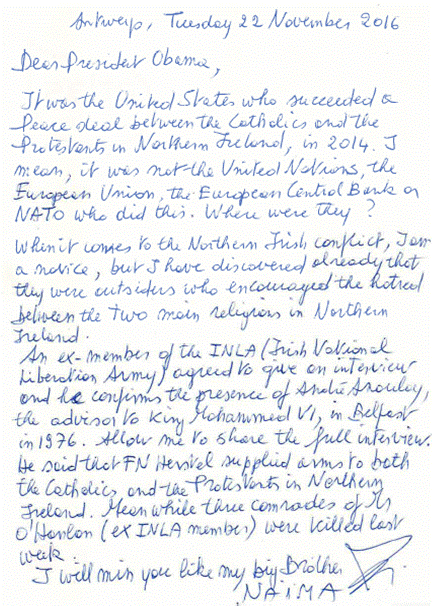 Antwerp, Tuesday 22 November 2016
Dear President Obama,
It was the United States who succeeded a
Peace deal between the Catholics and the
Protestants in Northern Ireland, in 2014. I
mean, it was not the United Nations, the
European Union, the European Central Bank or
NATO who did this. Where were they?
When it comes to the Northern Irish conflict, I am
a novice, but I have discovered already that
they were outsiders who encouraged the hatred
between the two main religions in Northern
Ireland.
An ex-member of the INLA (Irish National
Liberation Army) agreed to give an interview
and he confirms the presence of André Azoulay,
the advisor to King Mohammed VI, in Belfast
in 1976. Allow me to share the full interview.
He said that FN Herstal supplied arms to both
the Catholics and the Protestants in Northern
Ireland. Meanwhile three comrades of Mr
O'Hanlon (ex INLA member) were killed last
week.
I will miss you like my big Brother
NAIMA